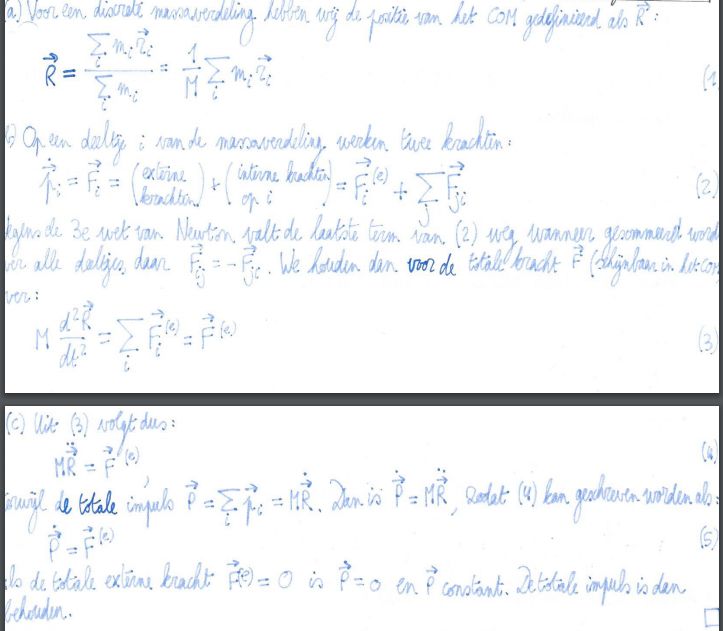 a) Voor een discrete massaverdeling hebben wij de positie van het COM gedefinieerd als R⃗ :
R⃗ = (∑_i m_i r⃗_i)/(∑_i m_i) = (1/M) ∑_i m_i r⃗_i (1
b) Op een deeltje i van de massaverdeling werken twee krachten:
ṗ⃗_i = F⃗_i = (externe krachten) + (interne krachten op i) = F⃗_i^(e) + ∑_j F⃗_ji (2)
lgens de 3e wet van Newton valt de laatste term van (2) weg wanneer gesommeerd word
ver alle deeltjes, daar F⃗_ij = -F⃗_ji. We houden dan voor de totale kracht F⃗ (schijnbaar in het COM
ver:
M d²R⃗/dt² = ∑_i F⃗_i^(e) = F⃗^(e) (3)
(c) Uit (3) volgt dus:
MR̈⃗ = F⃗^(e), (4)
erwijl de totale impuls P⃗ = ∑_i p⃗_i = MṘ⃗. Dan is Ṗ⃗ = MR̈⃗, zodat (4) kan geschreven worden als:
Ṗ⃗ = F⃗^(e) (5)
ls de totale externe kracht F⃗^(e) = 0 is Ṗ⃗ = 0 en P⃗ constant. De totale impuls is dan
behouden. □